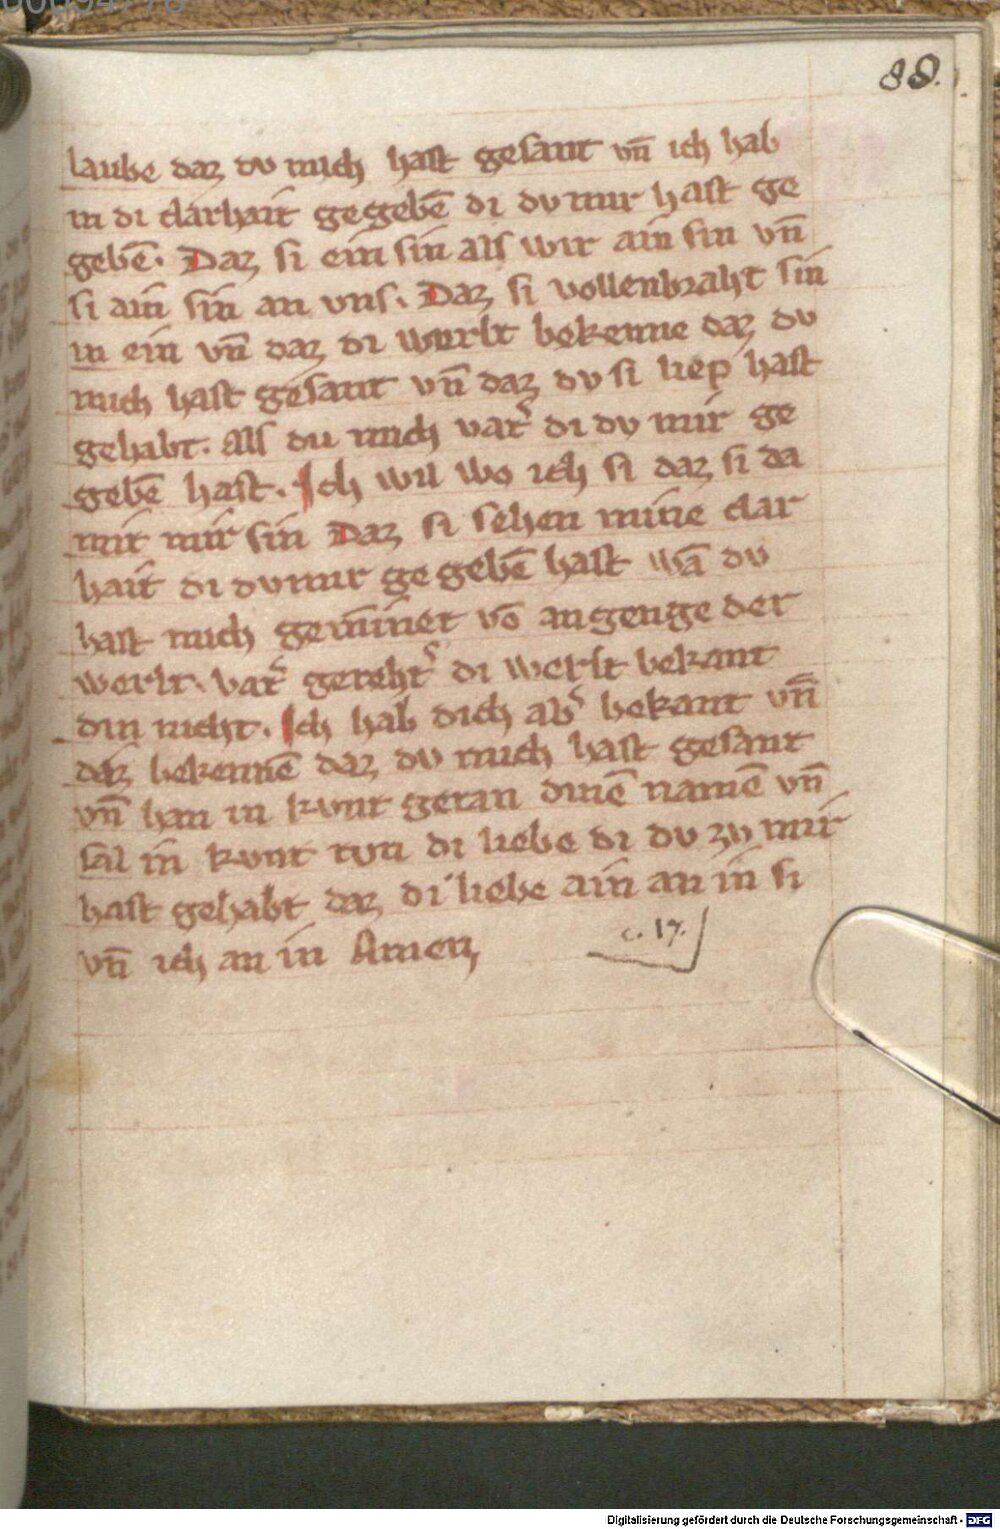 88.
laube daz du mich hast gesant vn̄ ich hab
in di clarhait gegebē di du mir hast ge
gebē. Daz si ein sin als wir ain sin vn̄
si ain sin an vns. Daz si vollenbraht sin
in ein vn̄ daz di werlt bekenne daz du
mich hast gesant vn̄ daz du si liep hast
gehabt. als du mich vat͛ di du mir ge
gebē hast. Ich wil wo ich si daz si da
mit mir sin Daz si sehen mine clar
hait di du mir gegebē hast wā du
hast mich geminnet vō angenge der
werlt. vat͛ gereht͛ di werlt bekant
din nicht. Ich hab dich ab͛ bekant vn̄
daz bekennē daz du mich hast gesant
vn̄ han in kunt getan dinē namē vn̄
sal in kunt tun di liebe di du zu mir
hast gehabt daz di liebe ain an in si
vn̄ ich an in Amen
c. 17.
Digitalisierung gefördert durch die Deutsche Forschungsgemeinschaft - DFG